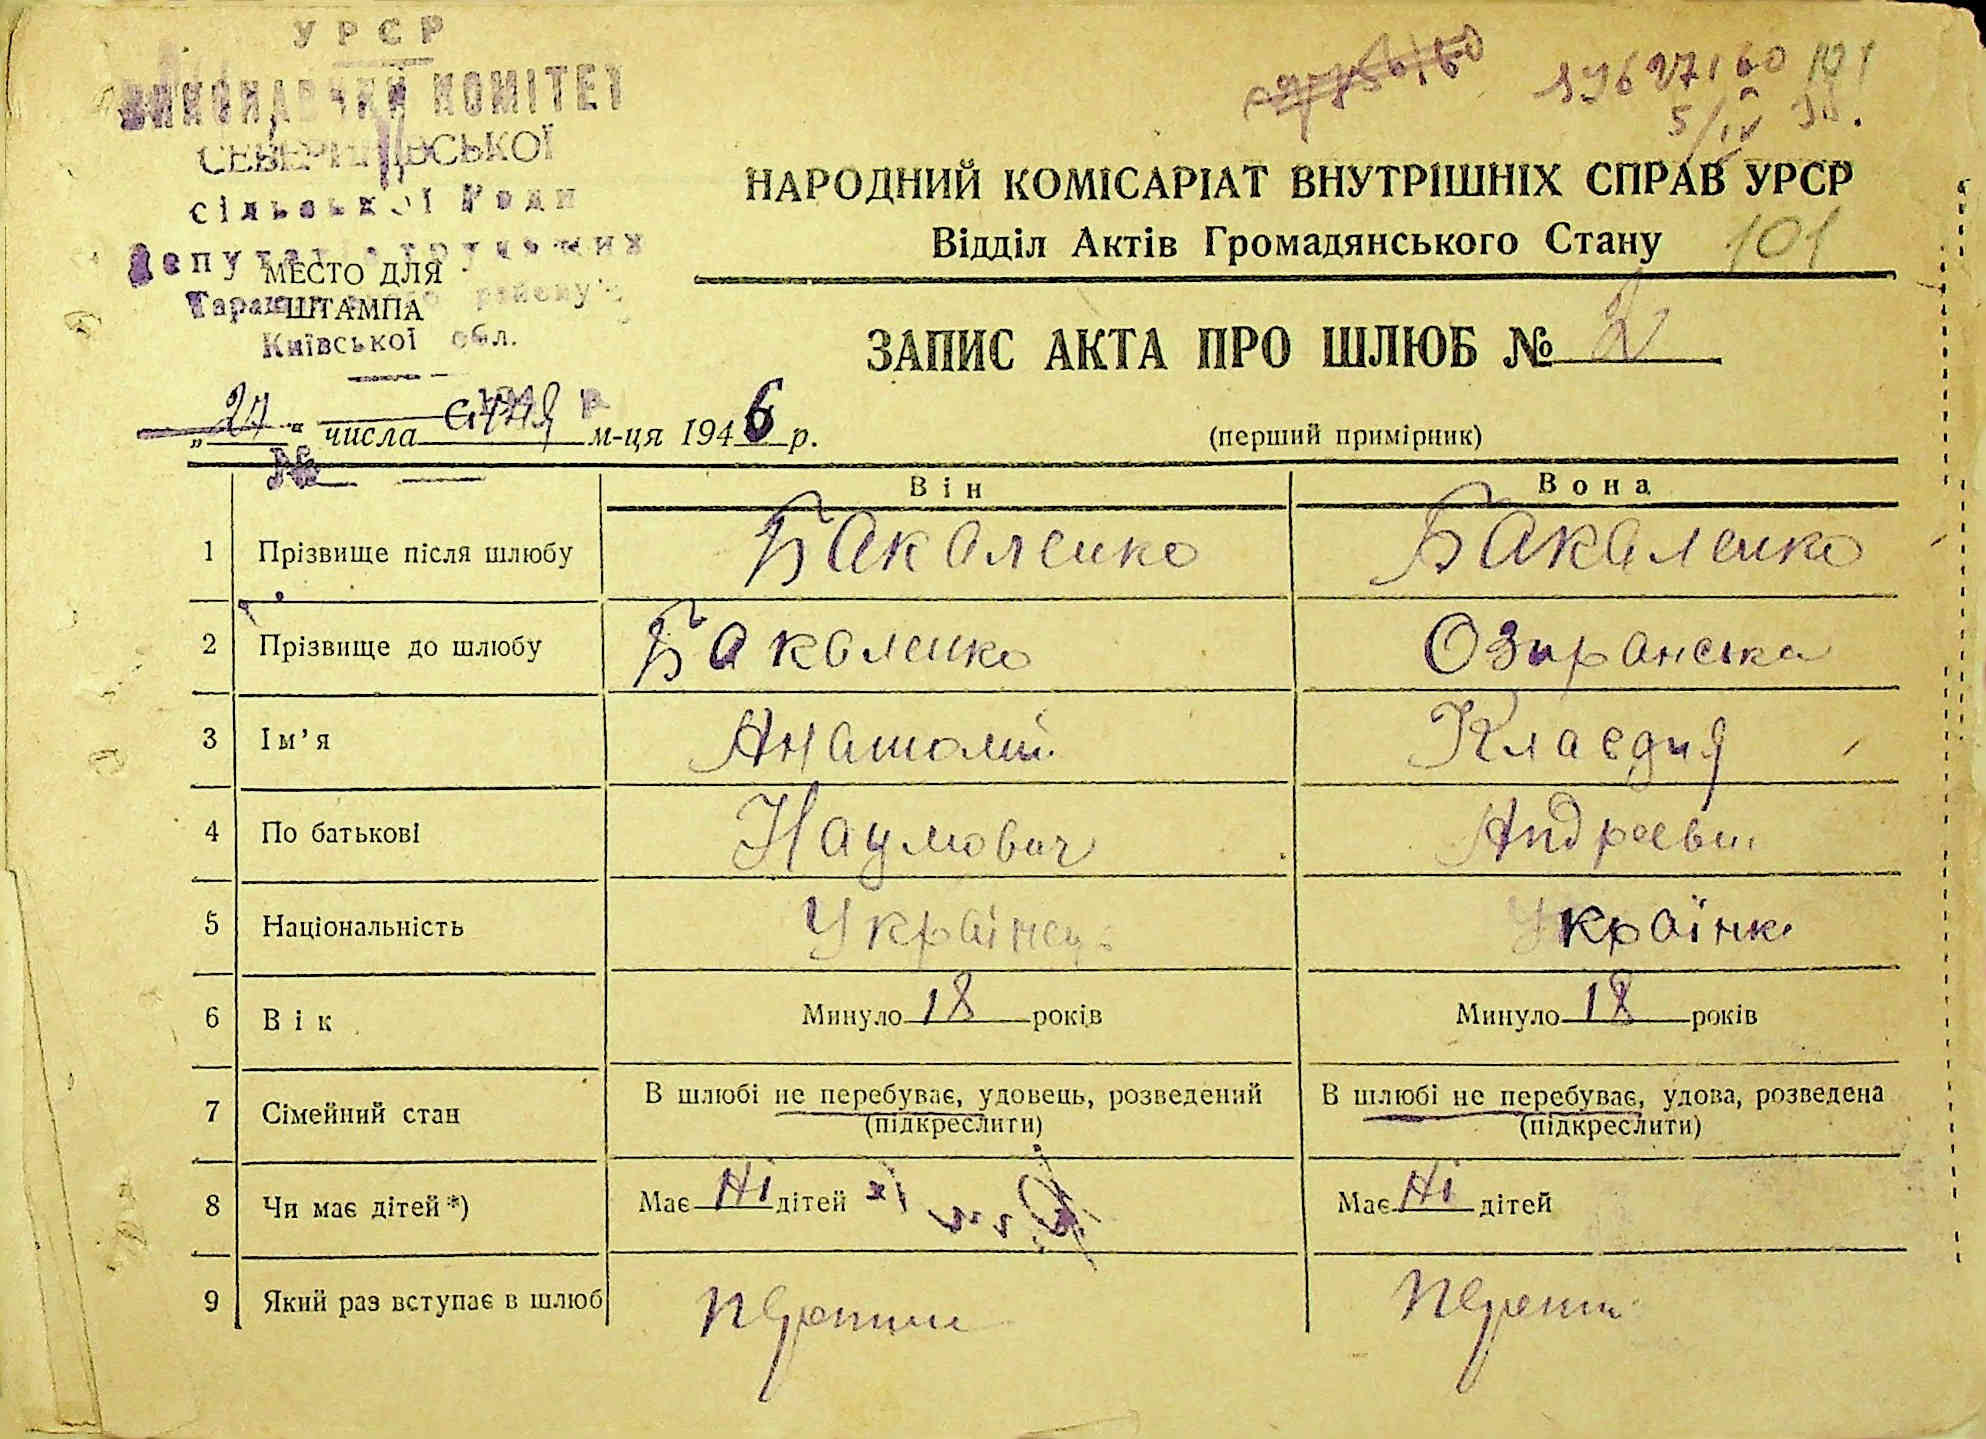 УРСР
ВИКОНАВЧИЙ КОМІТЕТ
СЕВЕРИНІВСЬКОЇ
сільської Ради
Депутатів трудящих
МЕСТО ДЛЯ
ШТАМПА
району
Київської обл.
19627160 101
5/IV
НАРОДНИЙ КОМІСАРІАТ ВНУТРІШНІХ СПРАВ УРСР
Відділ Актів Громадянського Стану 101
ЗАПИС АКТА ПРО ШЛЮБ № 2
„ " числа Січня м-ця 1946 р.
(перший примірник)
№
Він Вона
1 Прізвище після шлюбу Бакаленко Бакаленко
2 Прізвище до шлюбу Бакаленко Озиранська
3 Ім’я Анатолій Клавдия
4 По батькові Наумович
5 Національність Українець Українк
6 Вік Минуло 18 років Минуло 18 років
7 Сімейний стан В шлюбі не перебуває, удовець, розведений В шлюбі не перебуває, удова, розведена
(підкреслити) (підкреслити)
8 Чи має дітей *) Має Ні дітей Має Ні дітей
9 Який раз вступає в шлюб